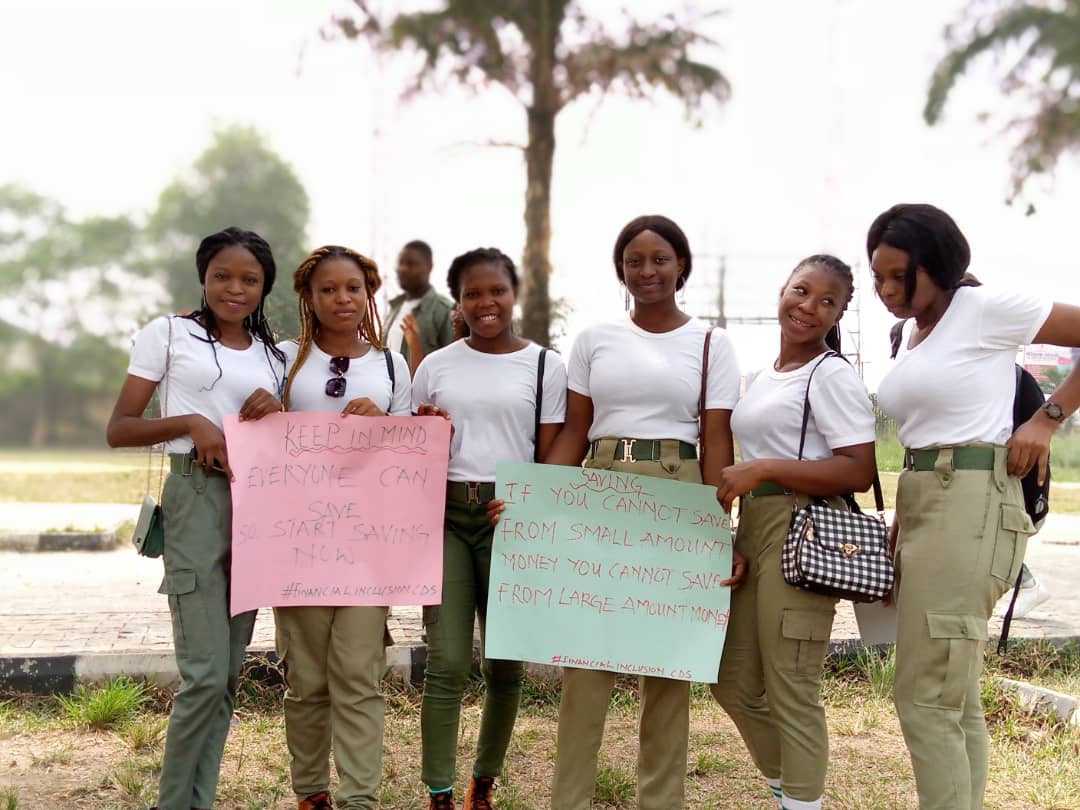 KEEP IN MIND
EVERYONE CAN
SAVE
SO START SAVING
NOW
#FINANCIAL INCLUSION CDS
SAVING
IF YOU CANNOT SAVE
FROM SMALL AMOUNT
MONEY YOU CANNOT SAVE
FROM LARGE AMOUNT MONEY
#FINANCIAL INCLUSION CDS